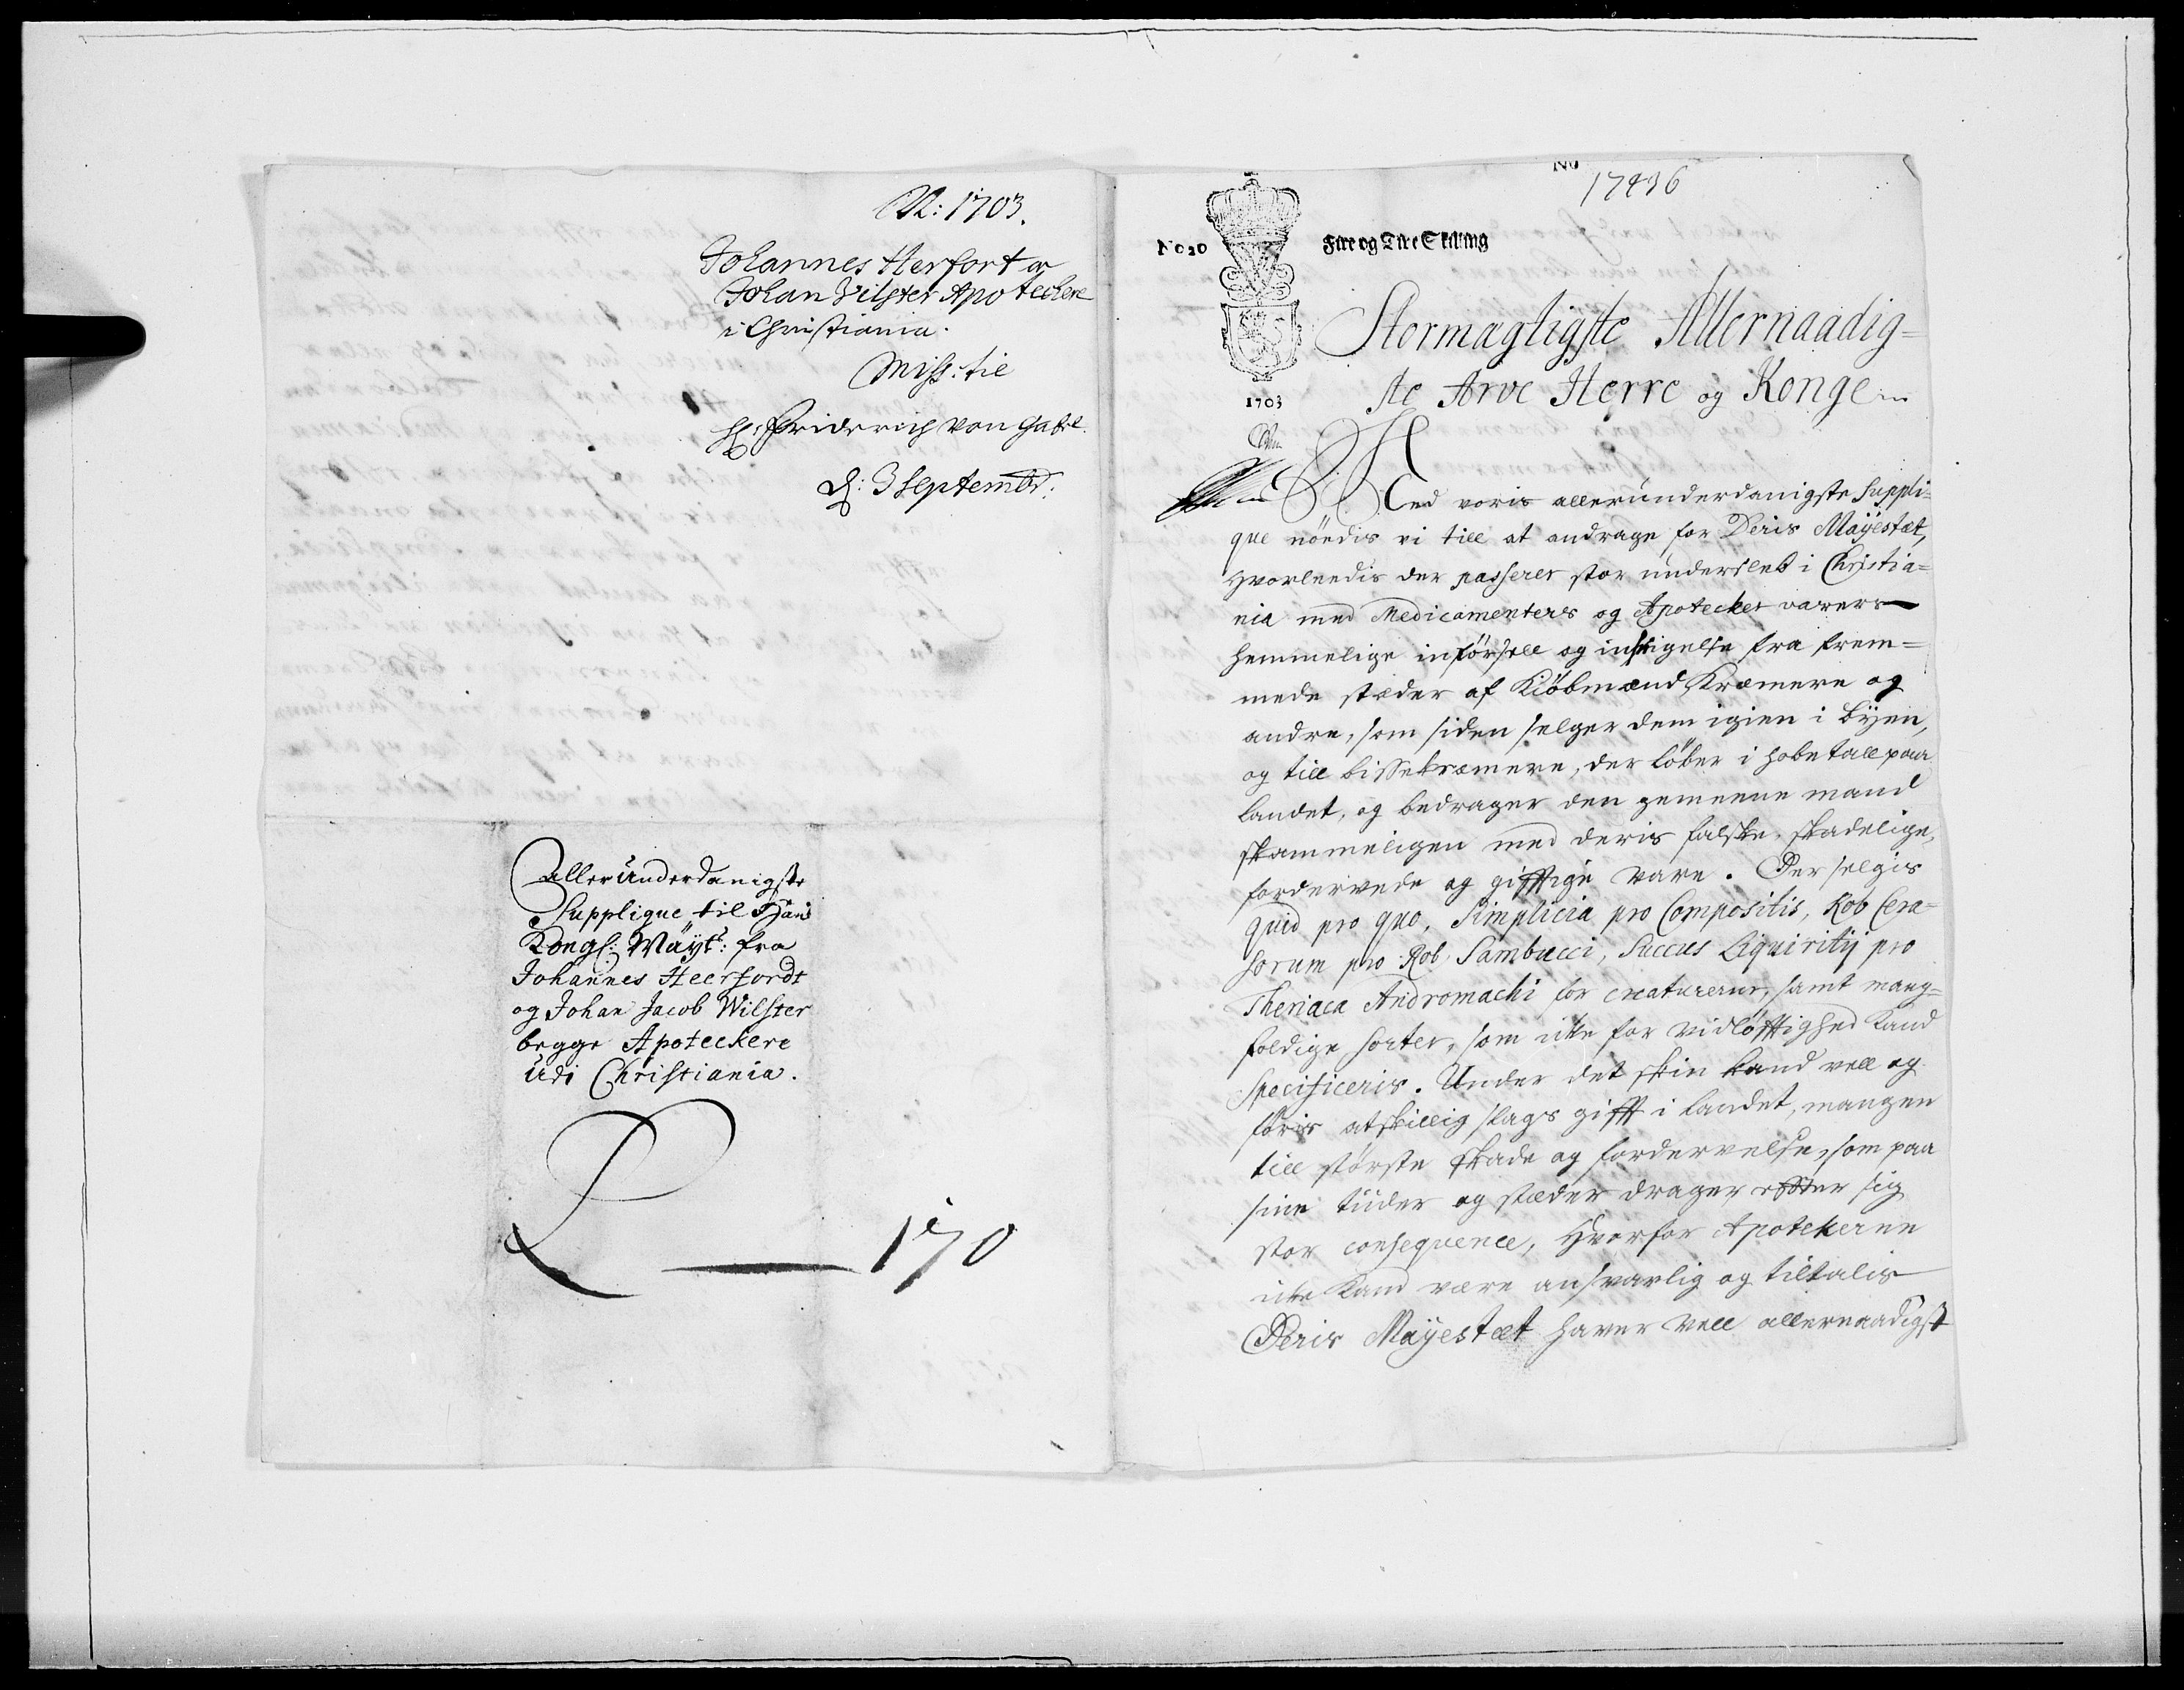 N: 1703.
Johannes Herfort og
Johan Vilster Apotechere
i Christiania.
Miss: til
H: Friderich von Gabel.
d: 3 Septembr:
Alleründerdanigste
Supplique til Hans
Kongl: Mäyt: fra
Johannes Heerfordt
og Johan Jacob Wilster
begge Apoteckere
üdi Christiania.
170
No
17436
No 20
Fire og Tive Skilling
1703
Stormagtigste Allernaadig=
ste Arve Herre og Konge
Med voris alleründerdanigste Suppli=
que nöedis vi till at andrage for Deris Mayestæt,
hvorleedis der passerer stor underslæb i Christia=
nia med Medicamenters og Apotecker varers
hemmelige införsell og insnigelse fra frem=
mede stæder af Kiöbmænd Kræmere og
andre, som siden selger dem igien i byen,
og till bissekræmere, der löber i hobetall paa
landet, og bedrager den gemeene mand
skammeligen med deris falske, skadelige,
fordervede og gifftige vare. Der selgis
quid pro quo, Simplicia pro Compositis, Rob Cera=
sorum pro Rob Sambucci, Succus Liquiritij pro
Theriaca Andromachi for creaturerne, samt mang=
foldige sorter, som icke for vidlöfftighed kand
specificeris. Under det skin kand vell og
föris atskillig slags gifft i landet, mangen
till störste skade og fordervelse, som paa
sine tüder og stæder drager effter sig
stor consequence, hvorfor Apotekerne
icke kand være ansvarlig og tiltalis
Deris Mayestæt haver vell allernaadigst